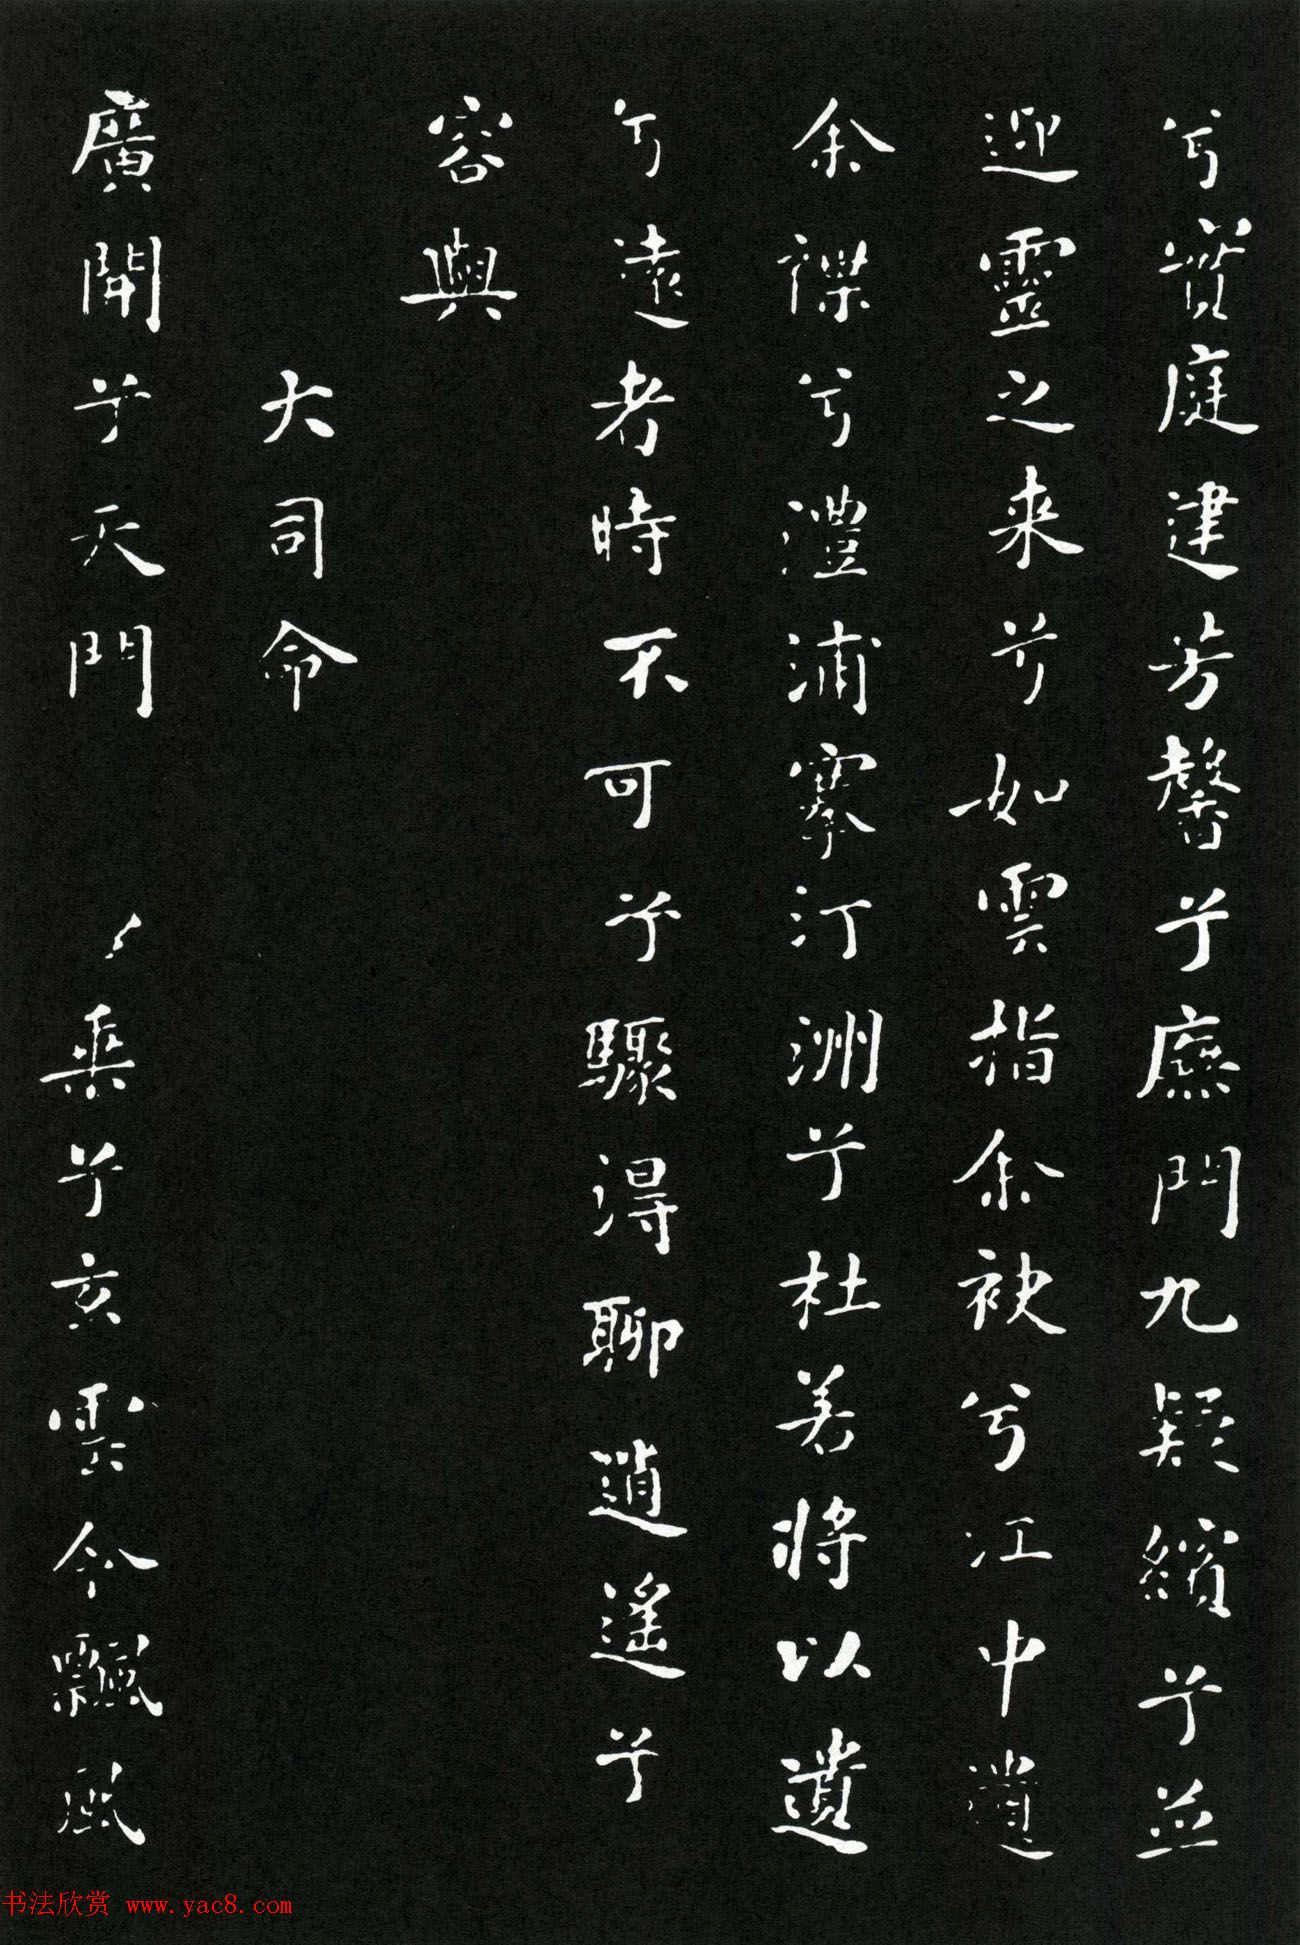 兮實庭建芳馨兮廡門九疑繽兮並
迎靈之来兮如雲捐余袂兮江中遺
余褋兮澧浦搴汀洲兮杜若將以遺
兮遠者時不可兮驟得聊逍遙兮
容與
大司命
廣開兮天門 乘兮玄雲令飄風
书法欣赏 www.yac8.com